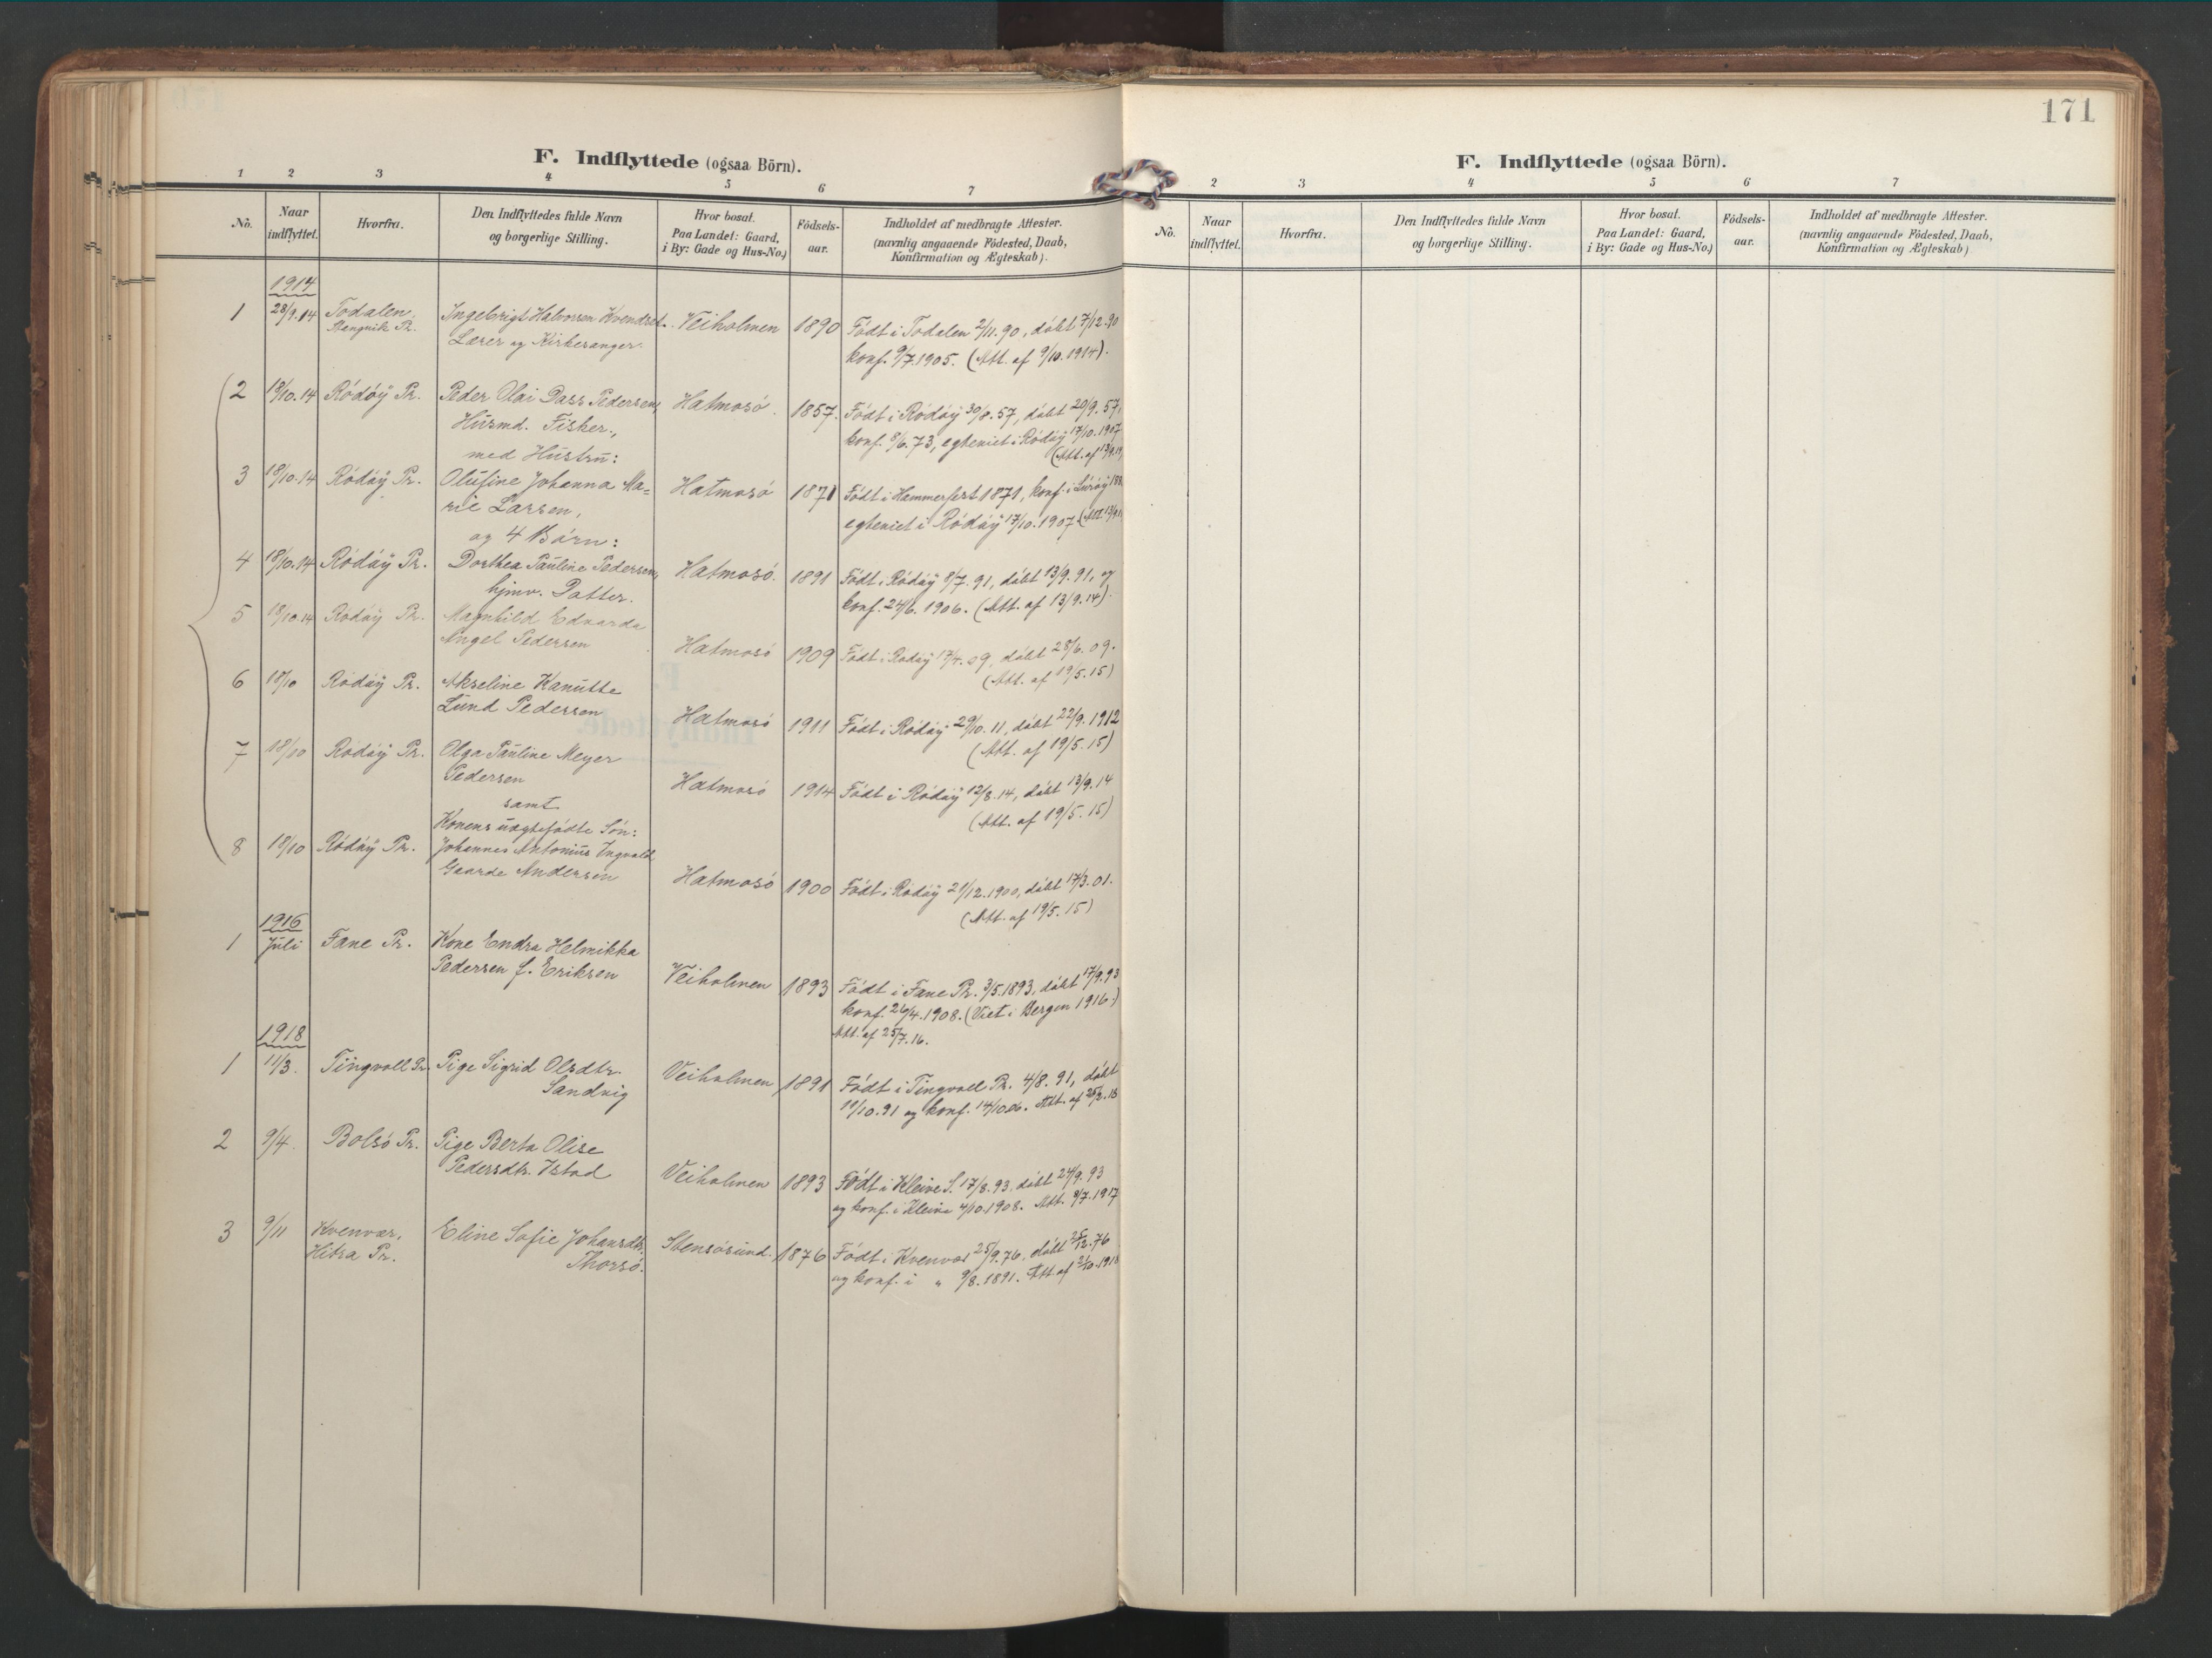 171
F. Indflyttede (ogsaa Börn).
1 2 3 4 5 6 7
No. Naar indflyttet. Hvorfra. Den Indflyttedes fulde Navn og borgerlige Stilling. Hvor bosat. Paa Landet: Gaard, i By: Gade og Hus-No.) Födsels-aar. Indholdet af medbragte Attester. (navnlig angaaende Födested, Daab, Konfirmation og Ægteskab).
1914
1 28/9.14 Todalen, Stangvik Pr. Ingebrigt Halvorsen Kvendset. Veiholmen 1890 Födt i Todalen 2/11.90, döbt 7/12.90
Lærer og Kirkesanger. konf. 9/7.1905. (Att. af 9/10.1914).
2 18/10.14 Rödöy Pr. Peder Olai Dass Pedersen, Hatmosö. 1857. Födt i Rödöy 30/8.57, döbt 20/9.57,
Husmd. Fisker., konf. 8/6.73, egteviet i Rödöy 17/10.1907
med Hustru: (Att. af 13/9.14)
3 18/10.14 Rödöy Pr. Olufine Johanna Ma= Hatmosö 1871 Födt i Hammerfest 1871, konf. i Luröy
rie Larsen, egteviet i Rödöy 17/10.1907
og 4 Börn:
4 18/10.14 Rödöy Pr. Dorthea Pauline Pedersen, Hatmosö. 1891 Födt i Rödöy 8/7.91, döbt 13/9.91, og
hjmv. Datter. konf. 24/6.1906. (Att. af 13/9.14).
5 18/10.14 Rödöy Pr. Magnhild Edvarda
Angel Pedersen Hatmosö 1909 Födt i Rödöy 17/4.09, döbt 28/6.09.
(Att. af 19/5.15)
6 18/10 Rödöy Pr. Akseline Kanutte
Lund Pedersen Hatmosö 1911 Födt i Rödöy 29/10.11, döbt 22/9.1912
(Att. af 19/5.15)
7 18/10 Rödöy Pr. Olga Pauline Meyer
Pedersen Hatmosö 1914 Födt i Rödöy 12/8.14, döbt 13/9.14
samt (Att. af 19/5.15)
Konens uægtefödte Sön:
8 18/10 Rödöy Pr. Johannes Antonius Ingvald
Gaarde Andersen Hatmosö 1900 Födt i Rödöy 21/12.1900, döbt 17/3.01.
(Att. af 19/5.15)
1916
1 Juli Fane Pr. Kone Endra Helmikka
Pedersen f. Eriksen Veiholmen 1893 Födt i Fane Pr. 3/5.1893, döbt 17/9.93
konf. 26/4.1908. (Viet i Bergen 1916.)
Att. af 25/7.16.
1918
1 11/3. Tingvoll Pr. Pige Sigrid Olsdtr. Veiholmen 1891 Födt i Tingvoll Pr. 4/8.91, döbt
Sandvig 11/10.91 og konf. 14/10.06. Att. af 25/2.18
2 9/4. Bolsö Pr. Pige Berta Olise
Pedersdtr. Istad Veiholmen 1893 Födt i Kleive S. 17/8.93, döbt 24/9.93
og konf. i Kleive 4/10.1908. Att. 8/7.1917
3 9/11 Kvenvær, Eline Sofie Johansdtr. Stensösund. 1876 Födt i Kvenvær 25/9.76, döbt 25/12.76
Hitra Pr. Thorsö. og konf. i " 9/8.1891. Att af 2/10.1918
F. Indflyttede (ogsaa Börn).
2 3 4 5 6 7
No. Naar indflyttet. Hvorfra. Den Indflyttedes fulde Navn og borgerlige Stilling. Hvor bosat. Paa Landet: Gaard, i By: Gade og Hus-No.) Födsels-aar. Indholdet af medbragte Attester. (navnlig angaaende Födested, Daab, Konfirmation og Ægteskab)